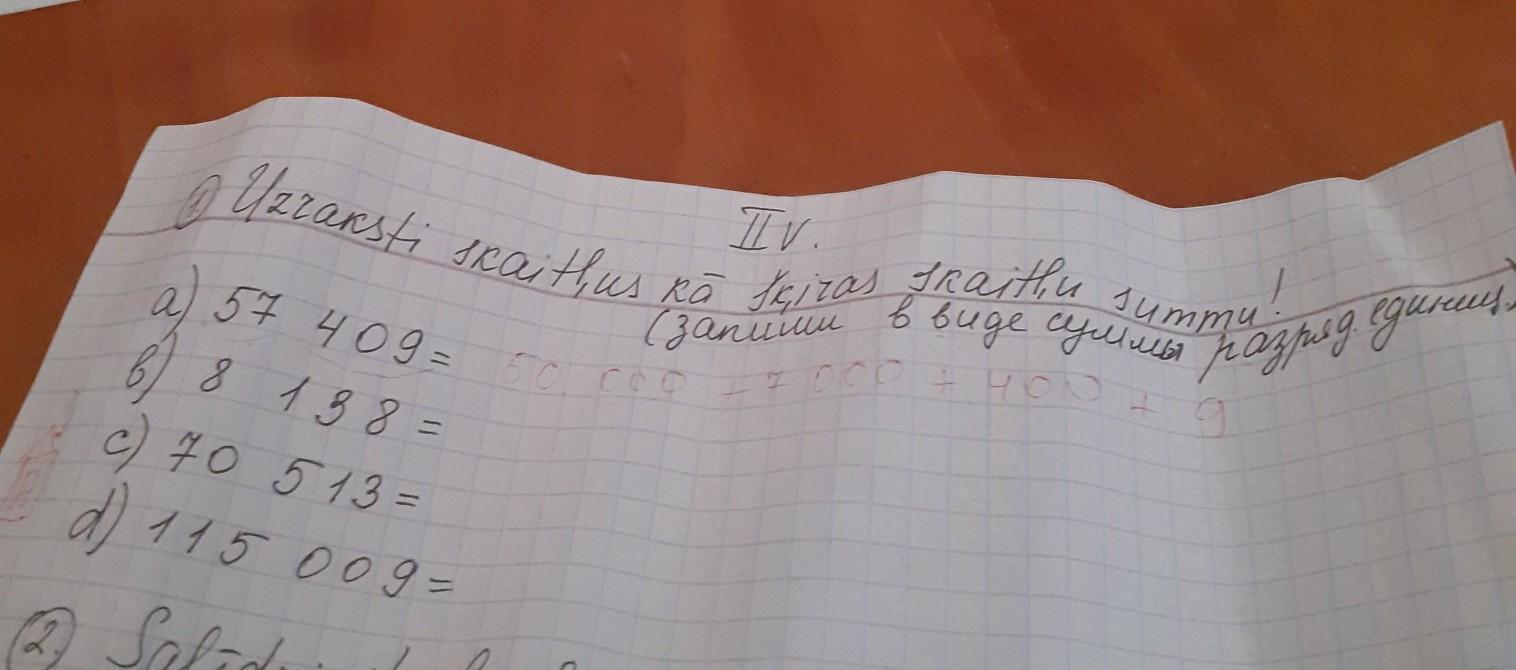 II v.
① Uzraksti skaitļus kā šķiras skaitļu summu!
(запиши в виде суммы разряд. единиц.
a) 57 409 = 50 000 + 7 000 + 400 + 9
b) 8 138 =
c) 70 513 =
d) 115 009 =
②